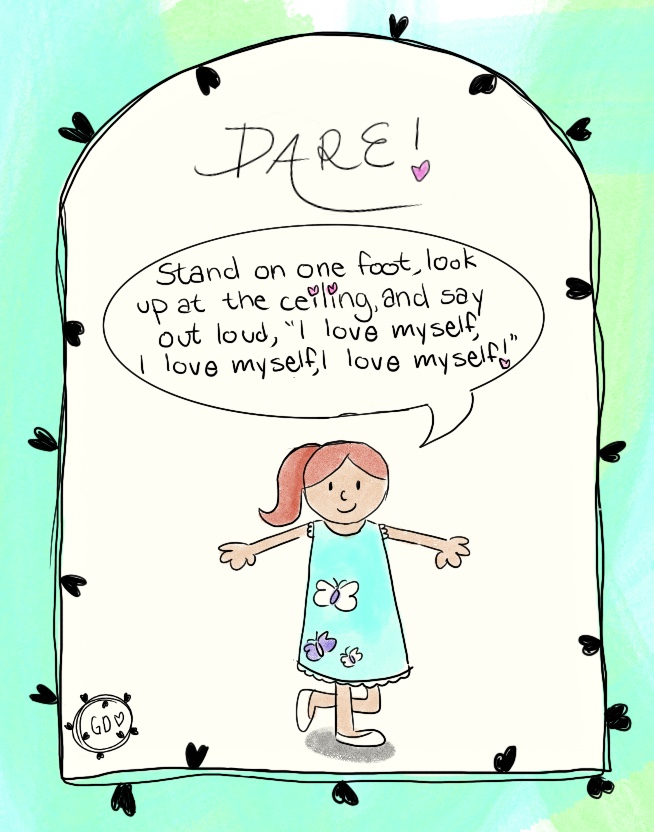 DARE!
Stand on one foot, look
up at the ceiling, and say
out loud, "I love myself,
I love myself, I love myself!"
GD